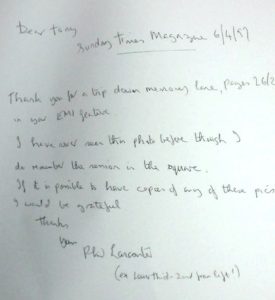 Dear Tony
Sunday Times Magazine 6/4/97
Thank you for a trip down memory lane, pages 26/2
in your EMI feature.
I have never seen this photo before though I
do remember the session in the square.
If it is possible to have copies of any of these pics
I would be grateful
Thanks
Your
Phil
(ex 2nd from left!)